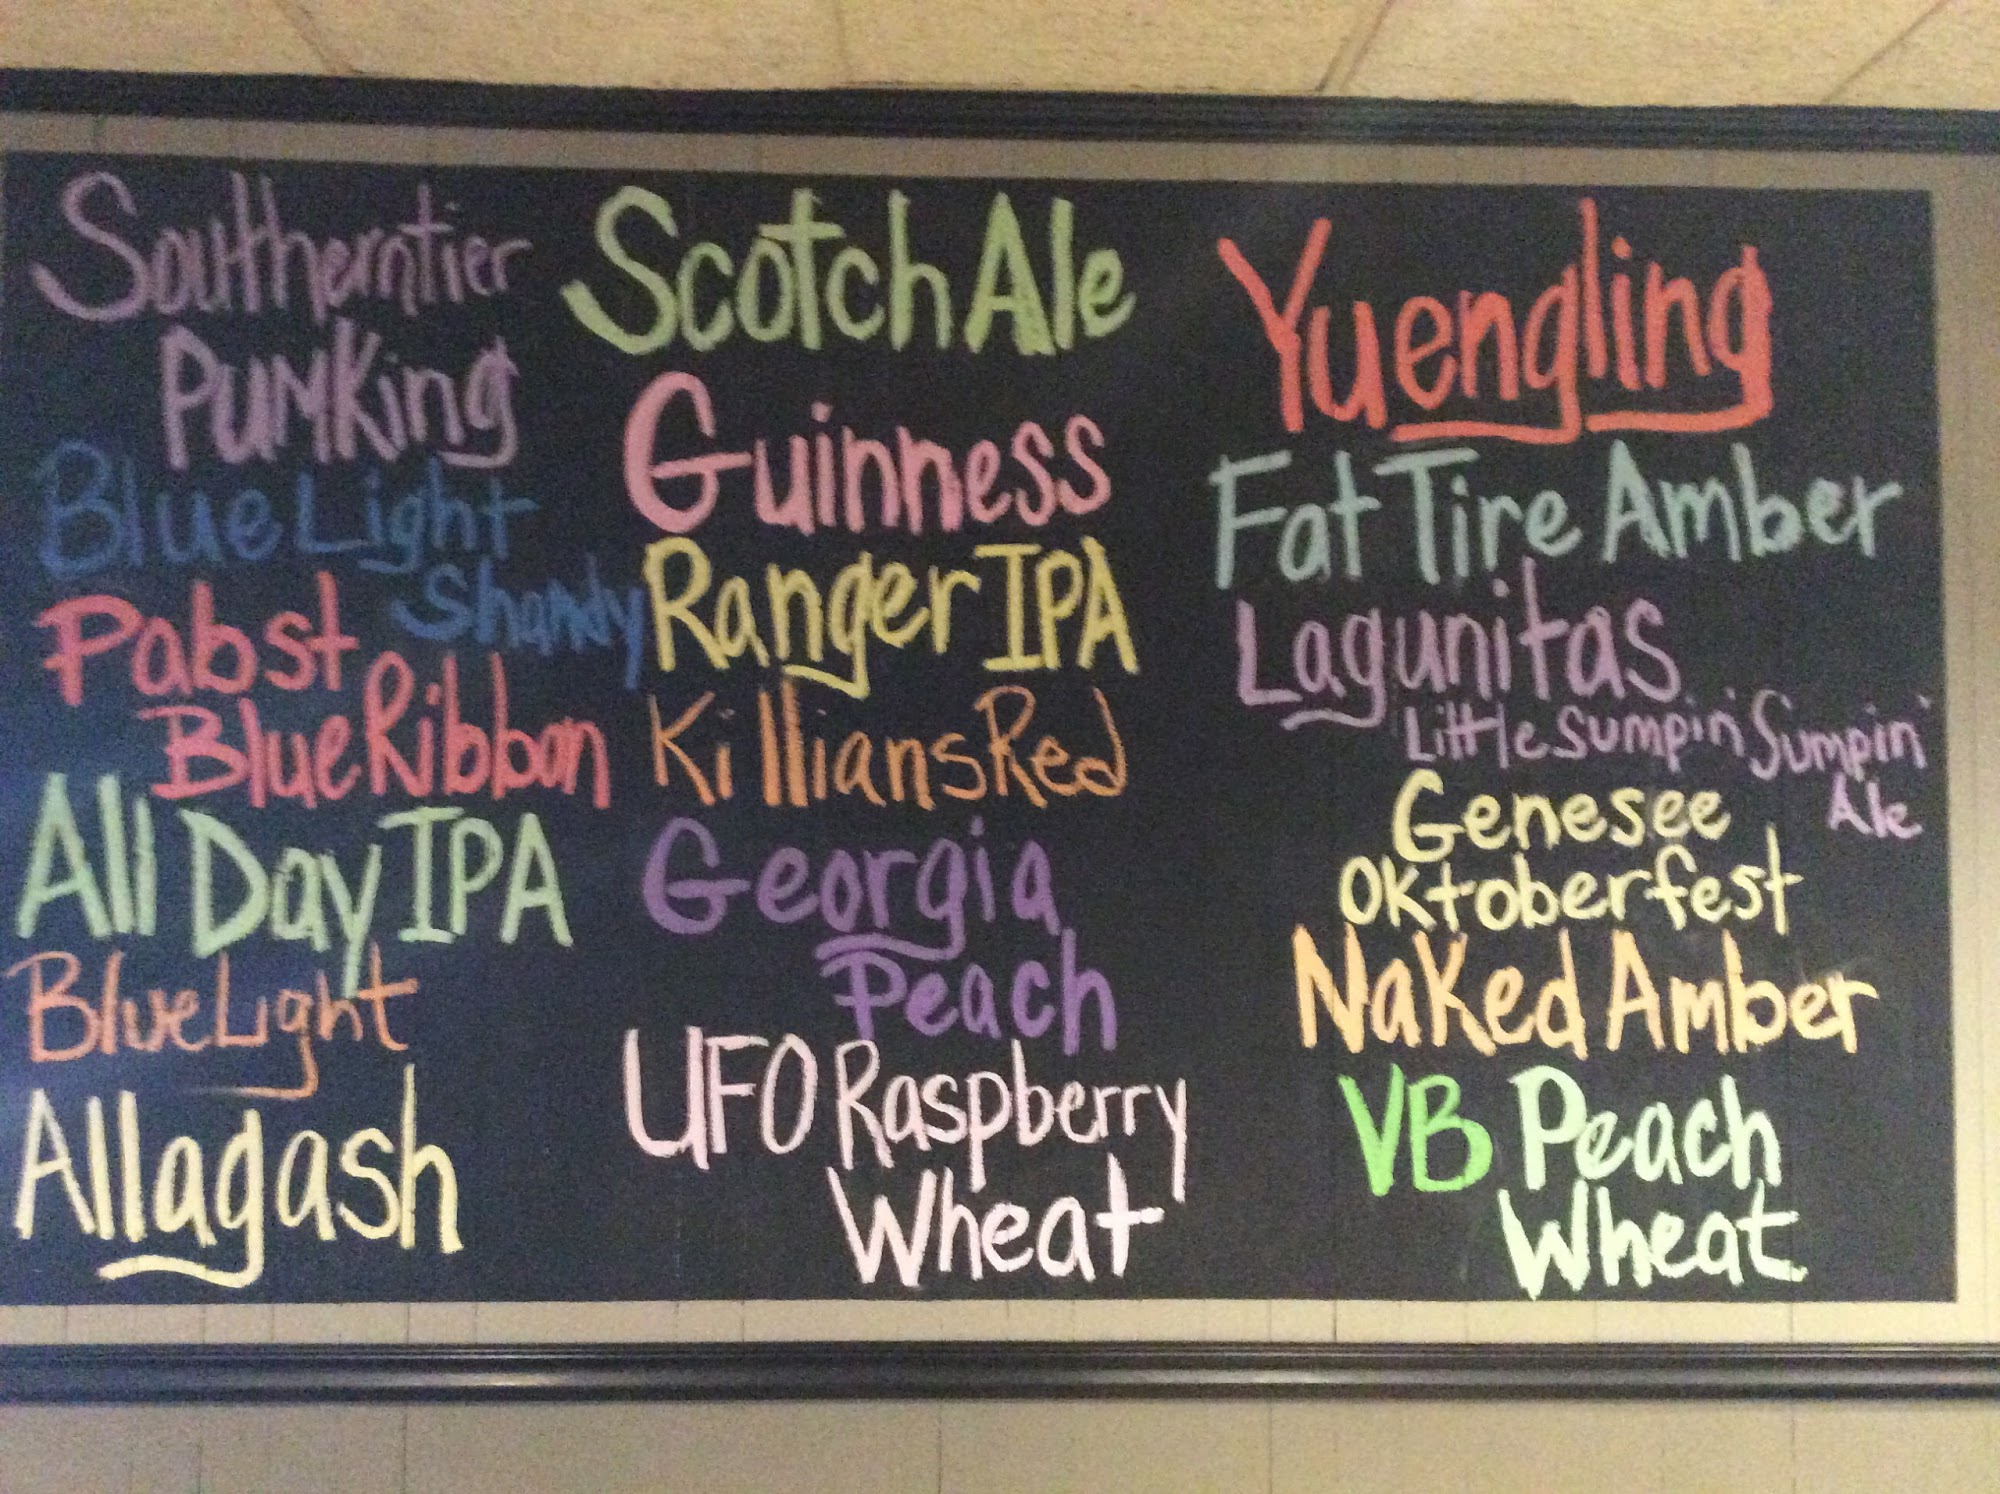 Southerntier
PUMKing
Blue Light
Shandy
Pabst
Blue Ribbon
All Day IPA
Blue Light
Allagash
Scotch Ale
Guinness
Ranger IPA
Killians Red
Georgia
Peach
UFO Raspberry
Wheat
Yuengling
Fat Tire Amber
Lagunitas
Little Sumpin' Sumpin'
Ale
Genesee
Oktoberfest
Naked Amber
VB Peach
Wheat